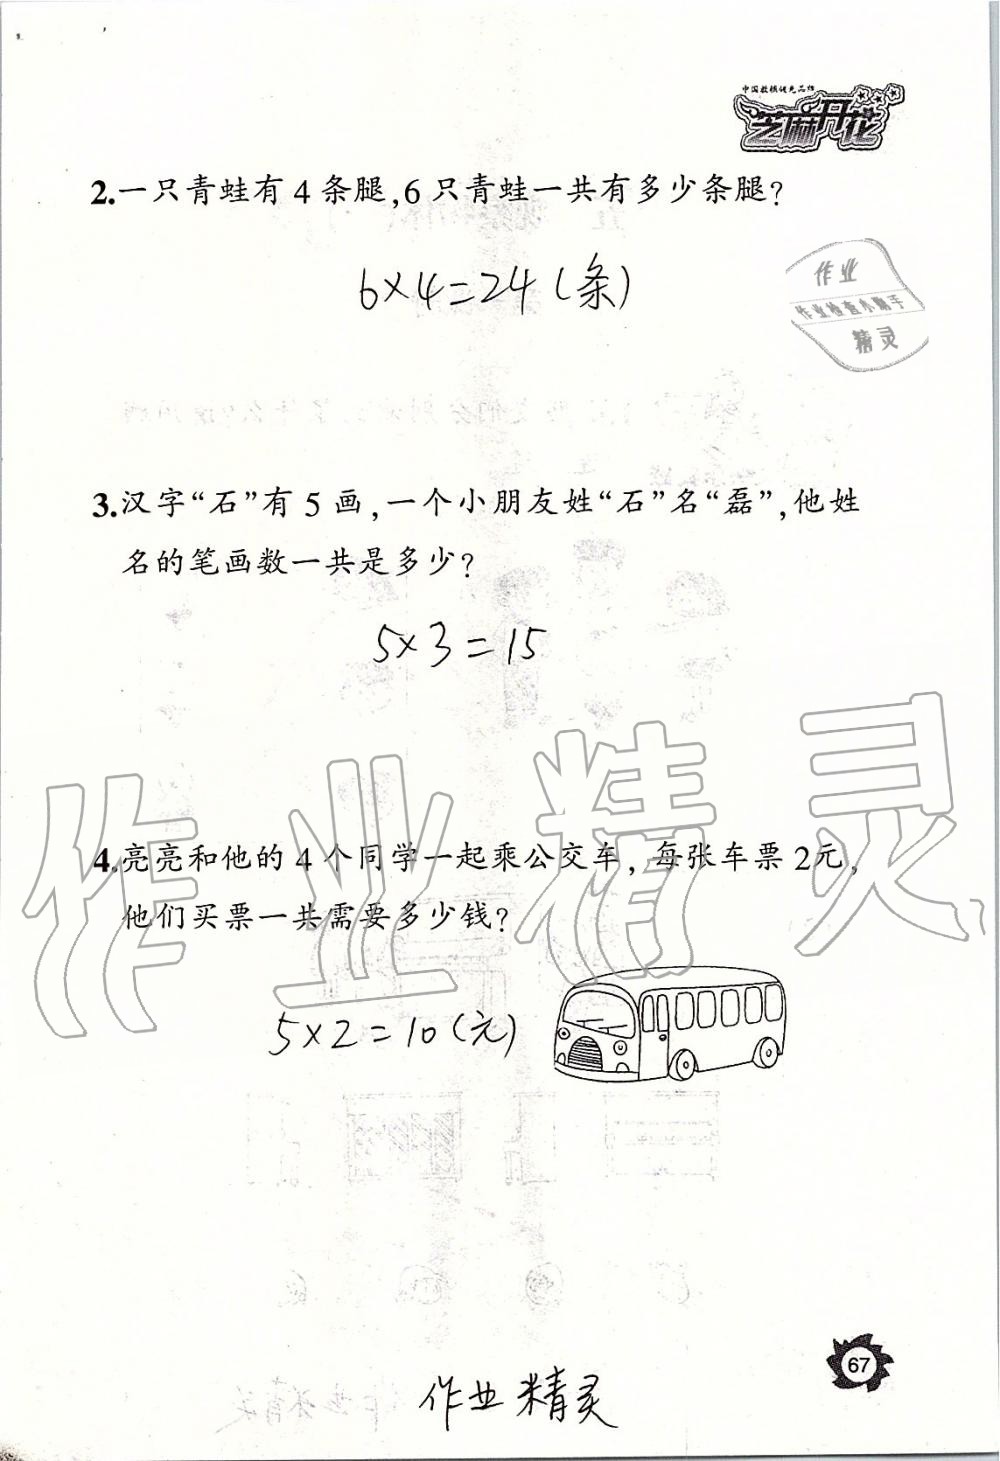 中国教辅领先品牌
芝麻开花
2.一只青蛙有4条腿,6只青蛙一共有多少条腿?
6×4=24(条)
作业
作业检查小帮手
精灵
3.汉字“石”有5画,一个小朋友姓“石”名“磊”,他姓
名的笔画数一共是多少?
5×3=15
作业精灵
4.亮亮和他的4个同学一起乘公交车,每张车票2元,
他们买票一共需要多少钱?
5×2=10(元)
67
作业精灵